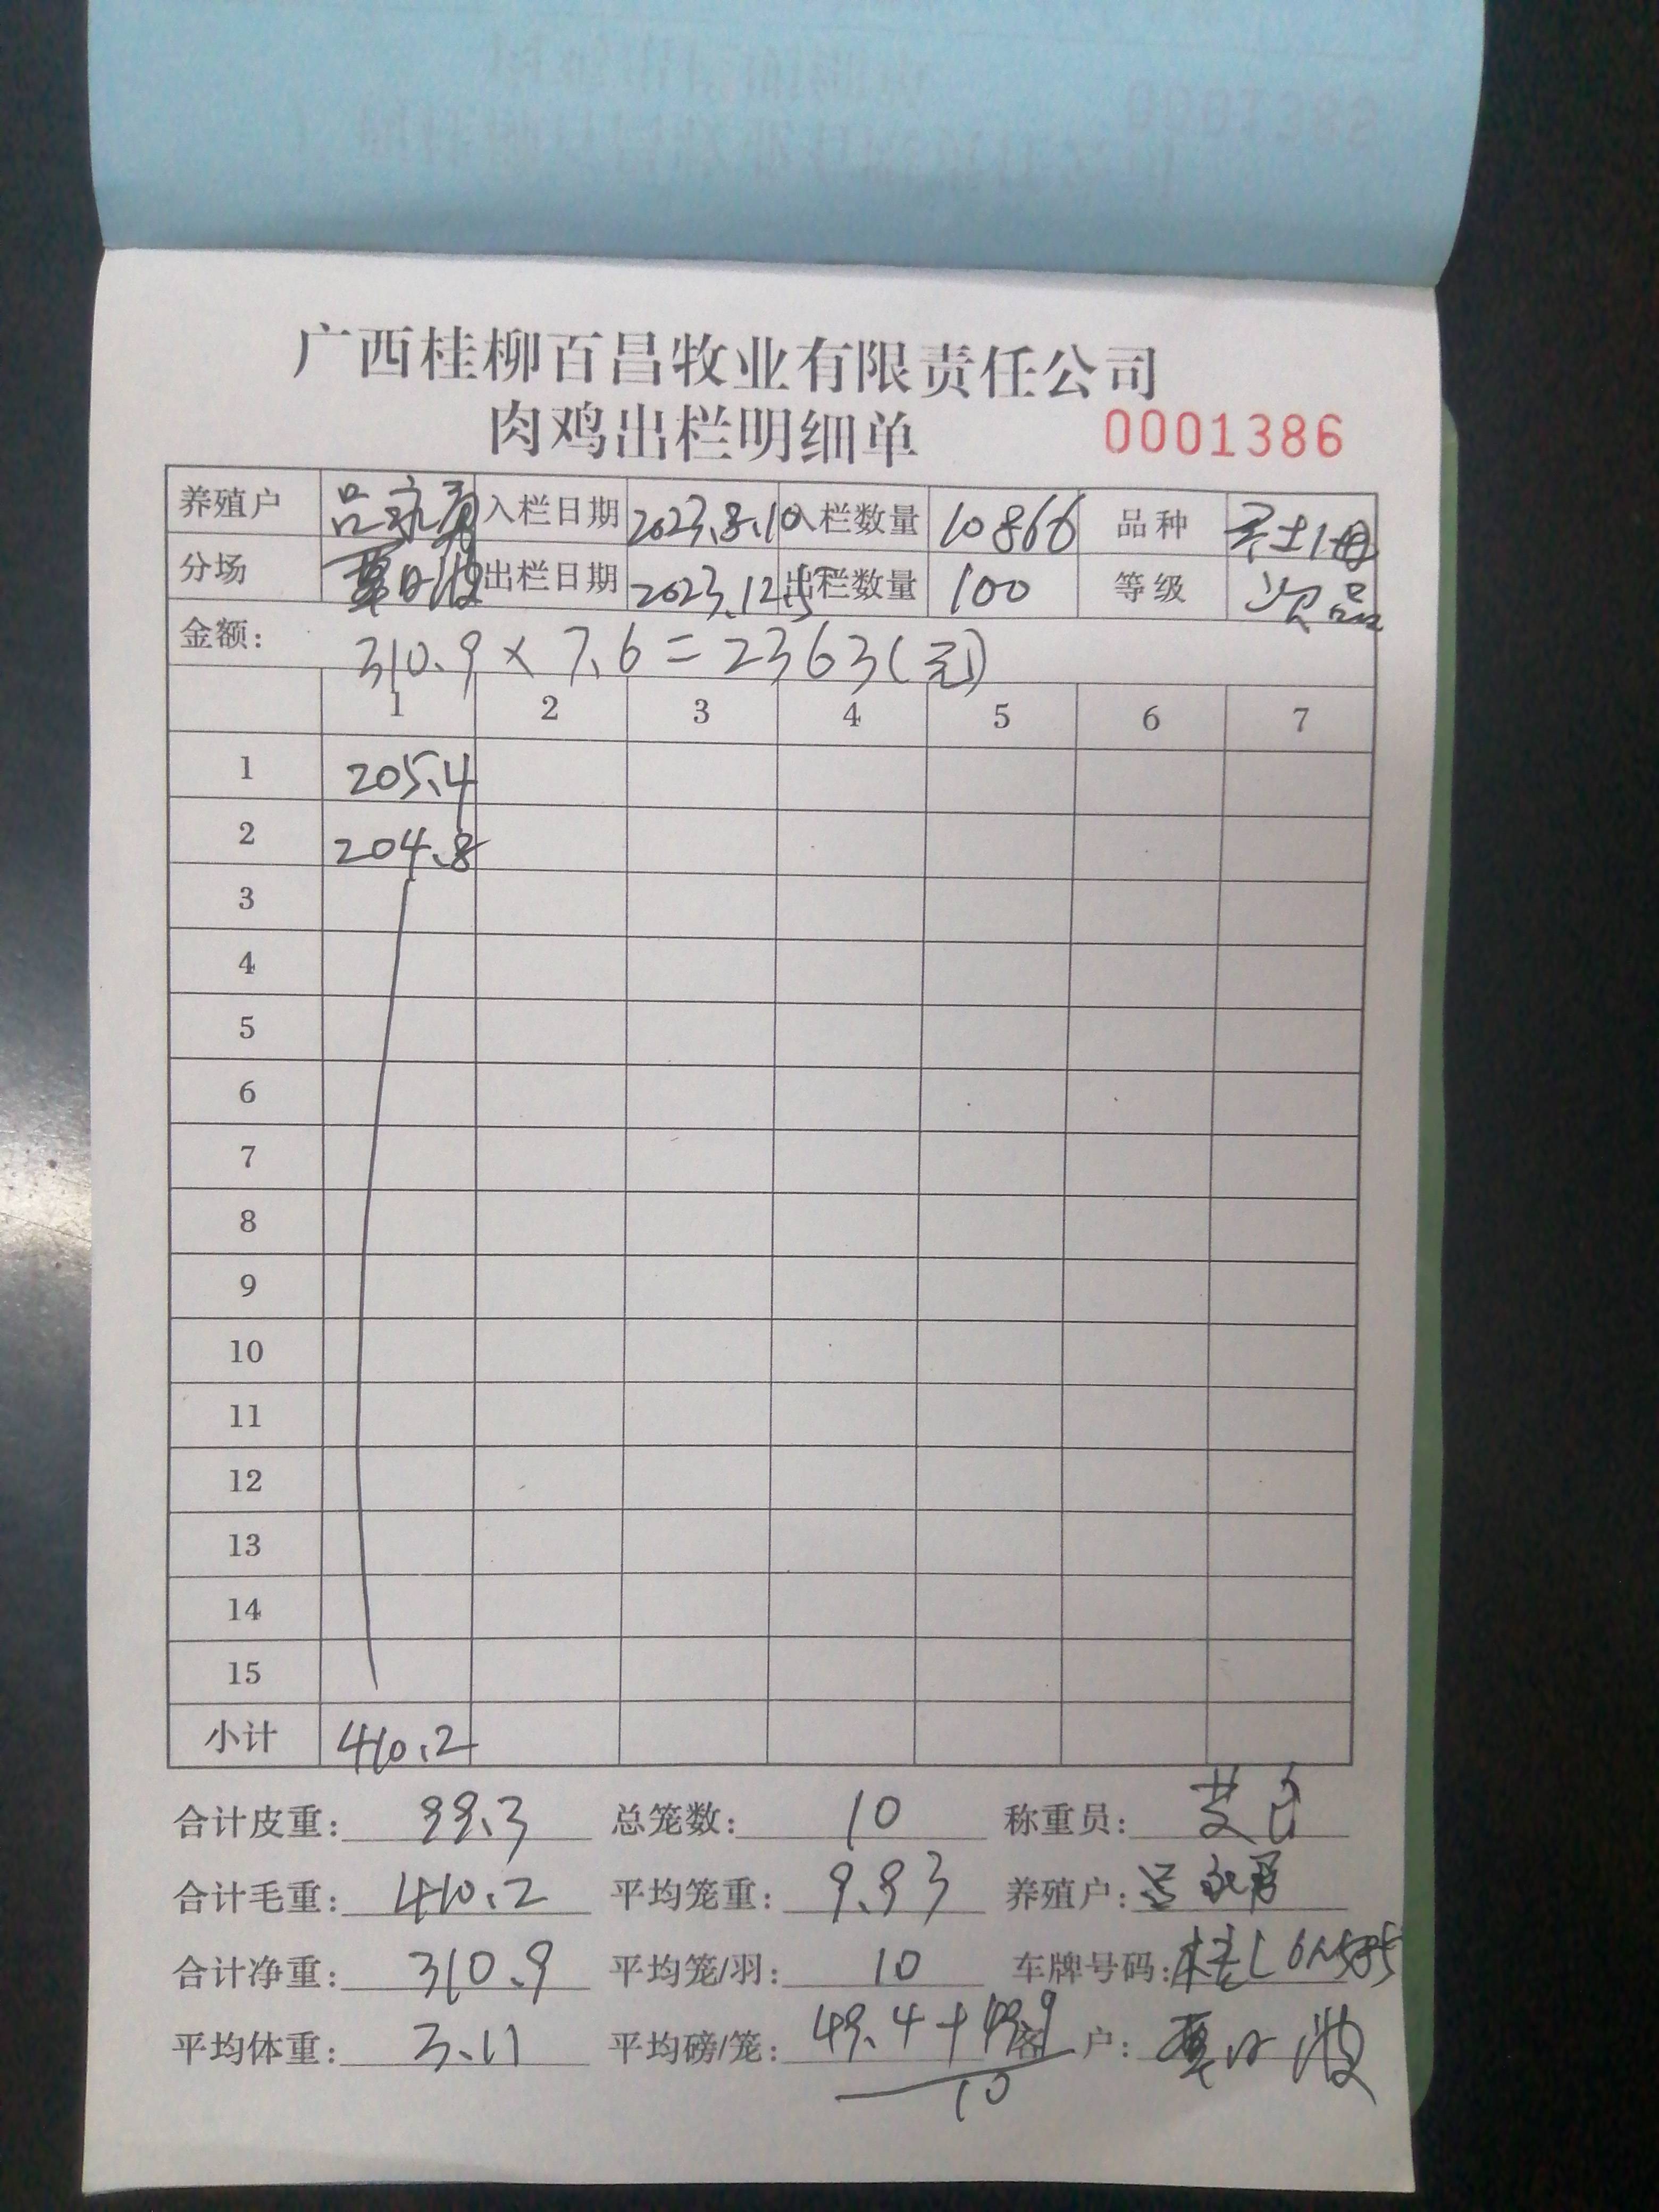 广西桂柳百昌牧业有限责任公司
肉鸡出栏明细单 0001386
养殖户 吕 入栏日期 2023.8.10 入栏数量 10866 品种 土1母
分场 出栏日期 2023.12.5 出栏数量 100 等级 次品
金额: 310.9 × 7.6 = 2363(元)
1 2 3 4 5 6 7
1 205.4
2 204.8
3
4
5
6
7
8
9
10
11
12
13
14
15
小计 410.2
合计皮重: 99.3 总笼数: 10 称重员:
合计毛重: 410.2 平均笼重: 9.93 养殖户: 吕
合计净重: 310.9 平均笼/羽: 10 车牌号码: 桂L
平均体重: 3.11 平均磅/笼: 49.4+49.9 客户:
10